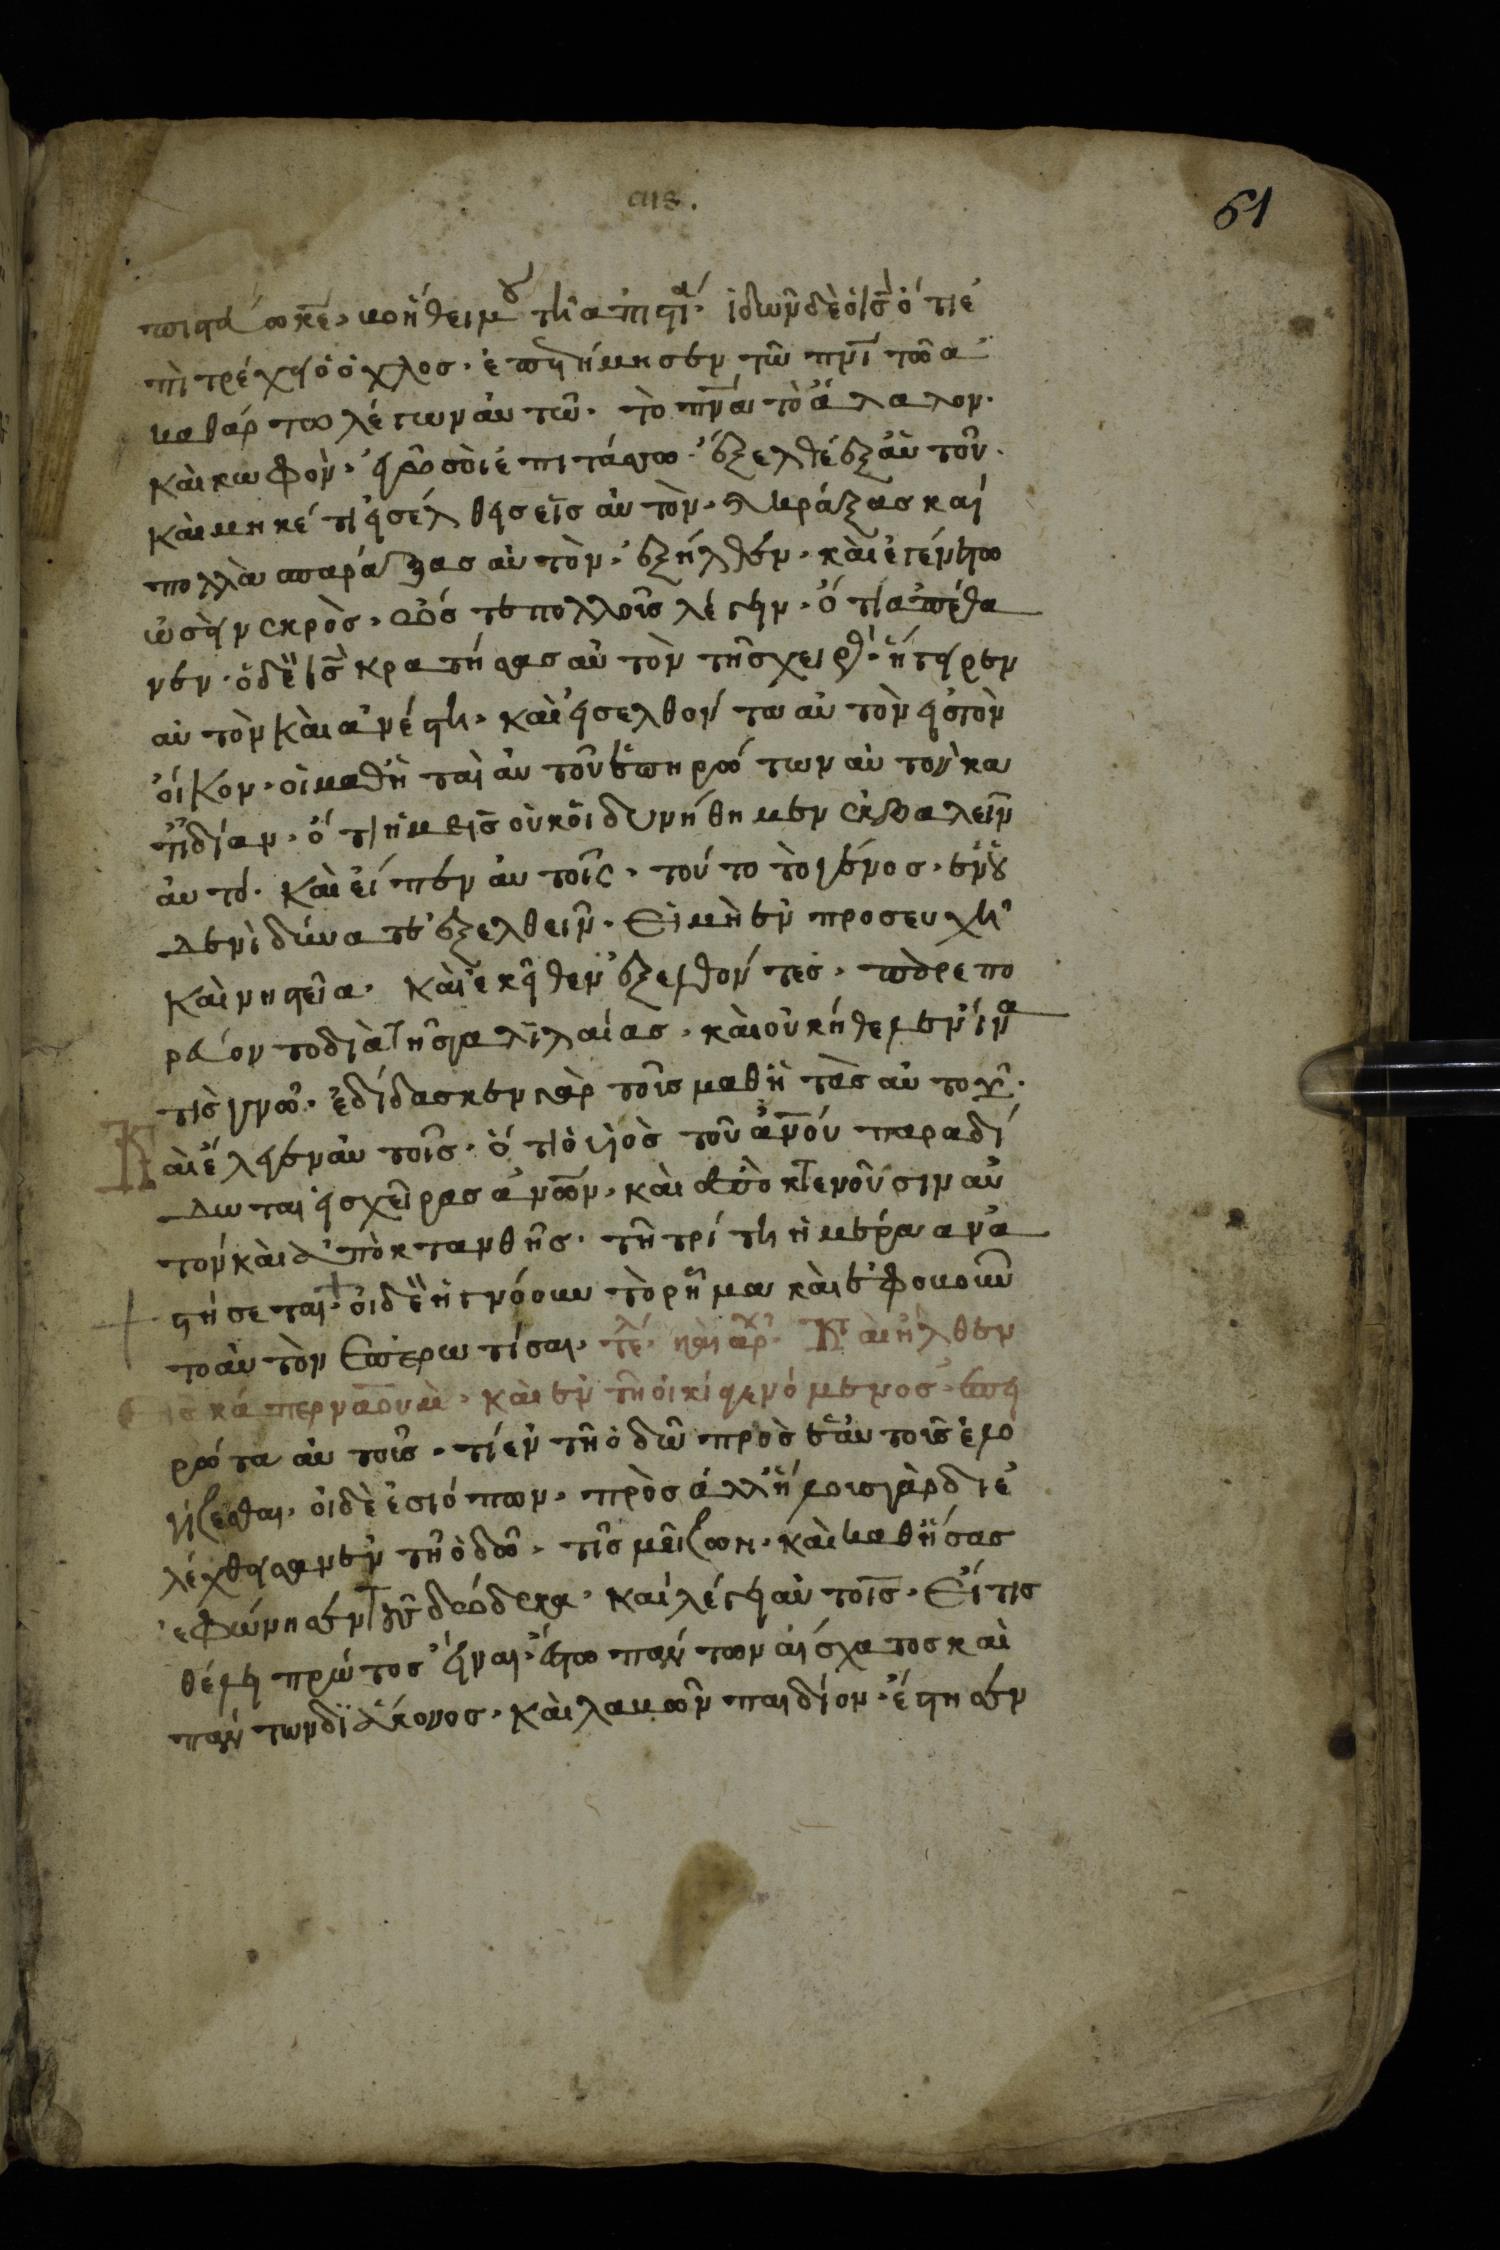 61
πιστεύω κε̅· βοήθει μου τῆ ἀπιστία· ἰδὼν δὲ ὁ ις̅ ὅτι ἐ
πιτρέχει ὁ ὄχλος· ἐπετίμησεν τῶ πνι̅ τῶ ἀ
καθάρτω λέγων αὐτῶ· τὸ πνα̅ τὸ ἄλαλον·
καὶ κωφὸν· ἐγὼ σοὶ ἐπιτάσσω· ἔξελθε ἐξ αὐτοῦ·
καὶ μηκέτι εἰσέλθης εἰς αὐτὸν· κράξας καὶ
πολλὰ σπαράξας αὐτὸν· ἐξῆλθεν· καὶ ἐγένετο
ὡσεὶ νεκρὸς· ὥστε πολλοῖς λέγειν· ὅτι ἀπέθα
νεν· ὁ δὲ ις̅ κρατήσας αὐτὸν τῆς χειρὸς· ἤγειρεν
αὐτὸν καὶ ἀνέστη· καὶ εἰσελθόντα αὐτὸν εἰς τὸν
οἶκον· οἱ μαθηταὶ αὐτοῦ ἐπηρώτων αὐτὸν κα
τιδίαν· ὅτι ἡμεῖς οὐκ οἰδυνήθημεν ἐκβαλεῖν
αὐτό· καὶ εἶπεν αὐτοῖς· τοῦτο τὸ γένος· ἐν οὐ
δενὶ δύναται ἐξελθεῖν· εἰ μὴ ἐν προσευχῆ
καὶ νηστεῖα· καὶ ἐκεῖθεν ἐξελθόντες· παρεπο
ρεύοντο διὰ τῆς γαλιλαίας· καὶ οὐκ ἤθελεν ἵνα
τὶς γνῶ· ἐδίδασκεν γὰρ τοὺς μαθητὰς αὐτοῦ·
Καὶ ἔλεγεν αὐτοῖς· ὅτι ὁ υἱὸς τοῦ ἀνου̅ παραδί
δωται εἰς χεῖρας ἀνων̅· καὶ ἀποκτενοῦσιν αὐ
τὸν καὶ ἀποκτανθῆς· τῆ τρίτη ἡμέρα ἀνα
στήσεται· οἱ δὲ ἠγνόουν τὸ ρῆμα καὶ ἐφοβοῦν
το αὐτὸν ἐπερωτίσαι· τέλ· καὶ ἀρχ· Καὶ ἦλθεν
εἰς καπερναοὺμ· καὶ ἐν τῆ οἰκί γενόμενος· ἐπη
ρώτα αὐτοὺς· τί ἐν τῆ ὁδῶ πρὸς ἑαυτοῖς ἐλο
γίζεσθαι· οἱ δὲ ἐσιόπων· πρὸς ἀλλήλους γὰρ διε
λέχθησαν ἐν τῆ ὁδῶ· τῖς μείζων· καὶ καθήσας
ἐφώνησεν τοὺς δώδεκα· καὶ λέγει αὐτοῖς· εἴ τις
θέλει πρώτος εἶναι· ἔστω πάντων αἴσχατος καὶ
πάντων διάκονος· καὶ λαβὼν παιδίον· ἔστησεν